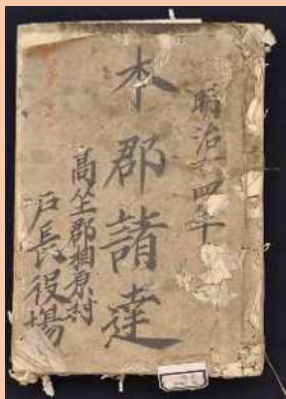 明治十四年
本郡諸達
高座郡栢原村
戸長役場